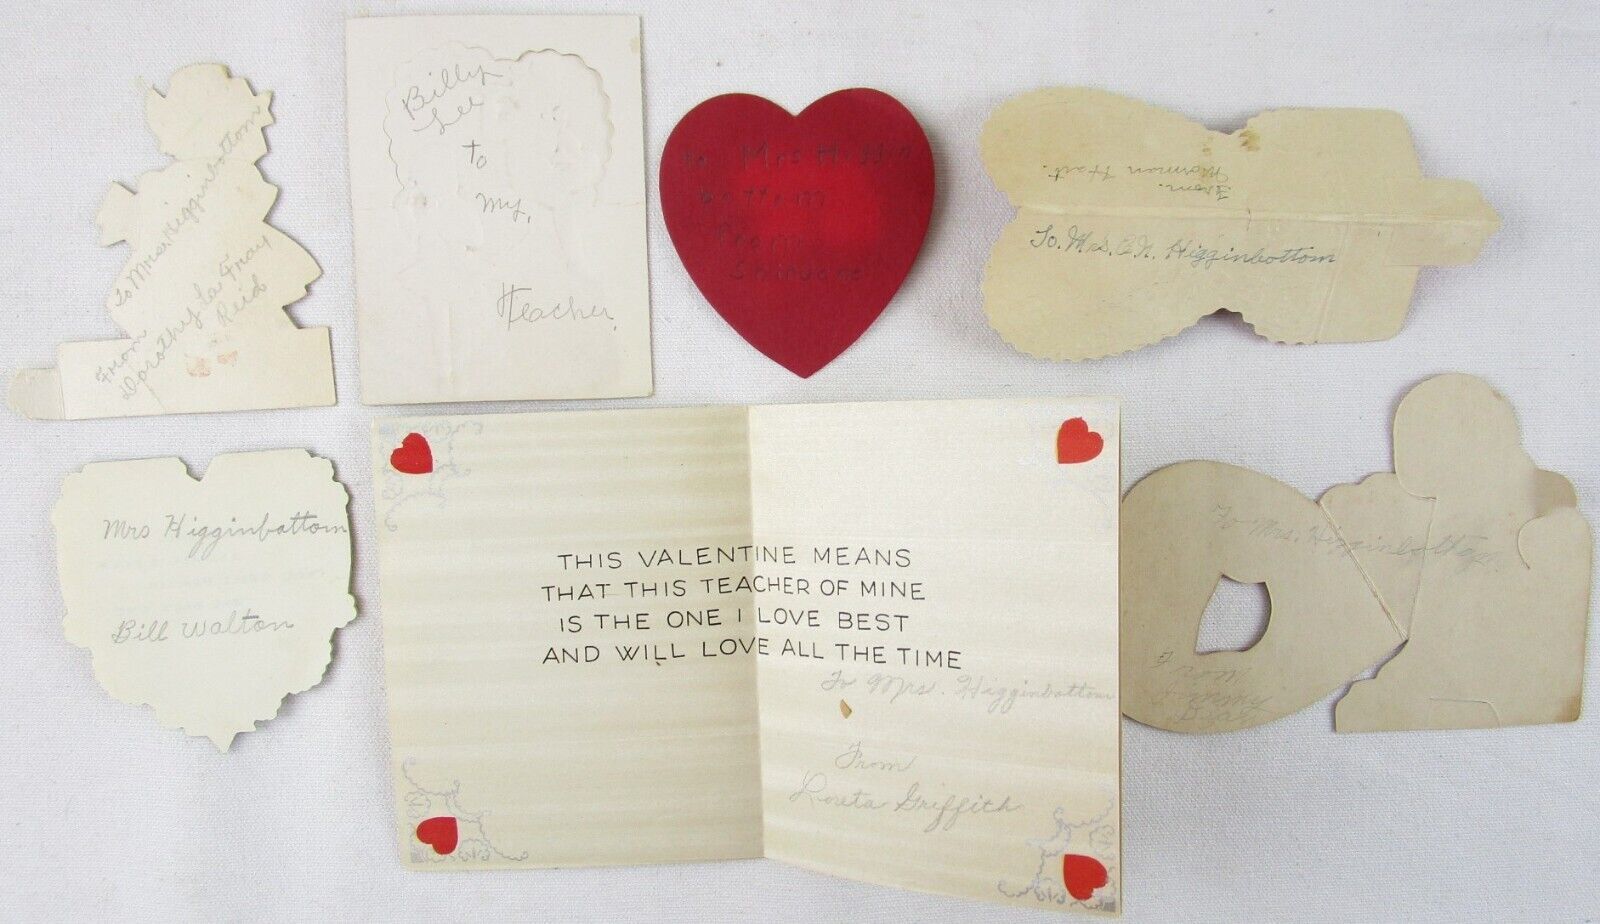 To Mrs. Higginbottom
From
Dorothy La Fray
Reid
Billy
Lee
to
my,
Teacher
To Mrs Higgin
bottom
From
To. Mrs. C. N. Higginbottom
From.
Norman Hait.
Mrs Higginbattom
Bill Walton
THIS VALENTINE MEANS
THAT THIS TEACHER OF MINE
IS THE ONE I LOVE BEST
AND WILL LOVE ALL THE TIME
To Mrs. Higginbottom
From
Loreta Griffith
To Mrs. Higginbottom.